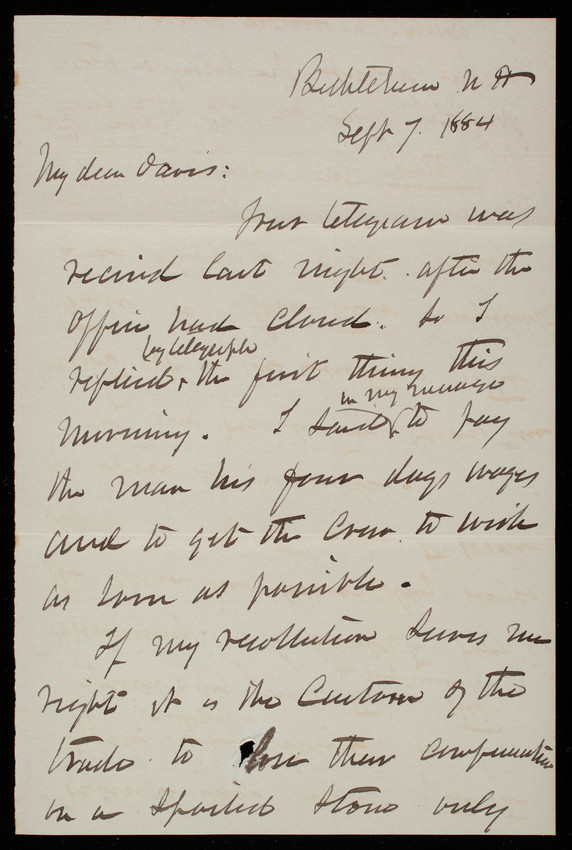 Bethlehem N H
Sept 7. 1884
My dear Davis:
Your telegram was
recieved last night after the
office had closed. So I
by telegraph
replied the first thing this
in my message
morning. I said to pay
the man his four days wages
and to get the crew to work
as soon as possible.
If my recollection serves me
right it is the Custom of the
trade to lose their compensation
on a spoiled stone only